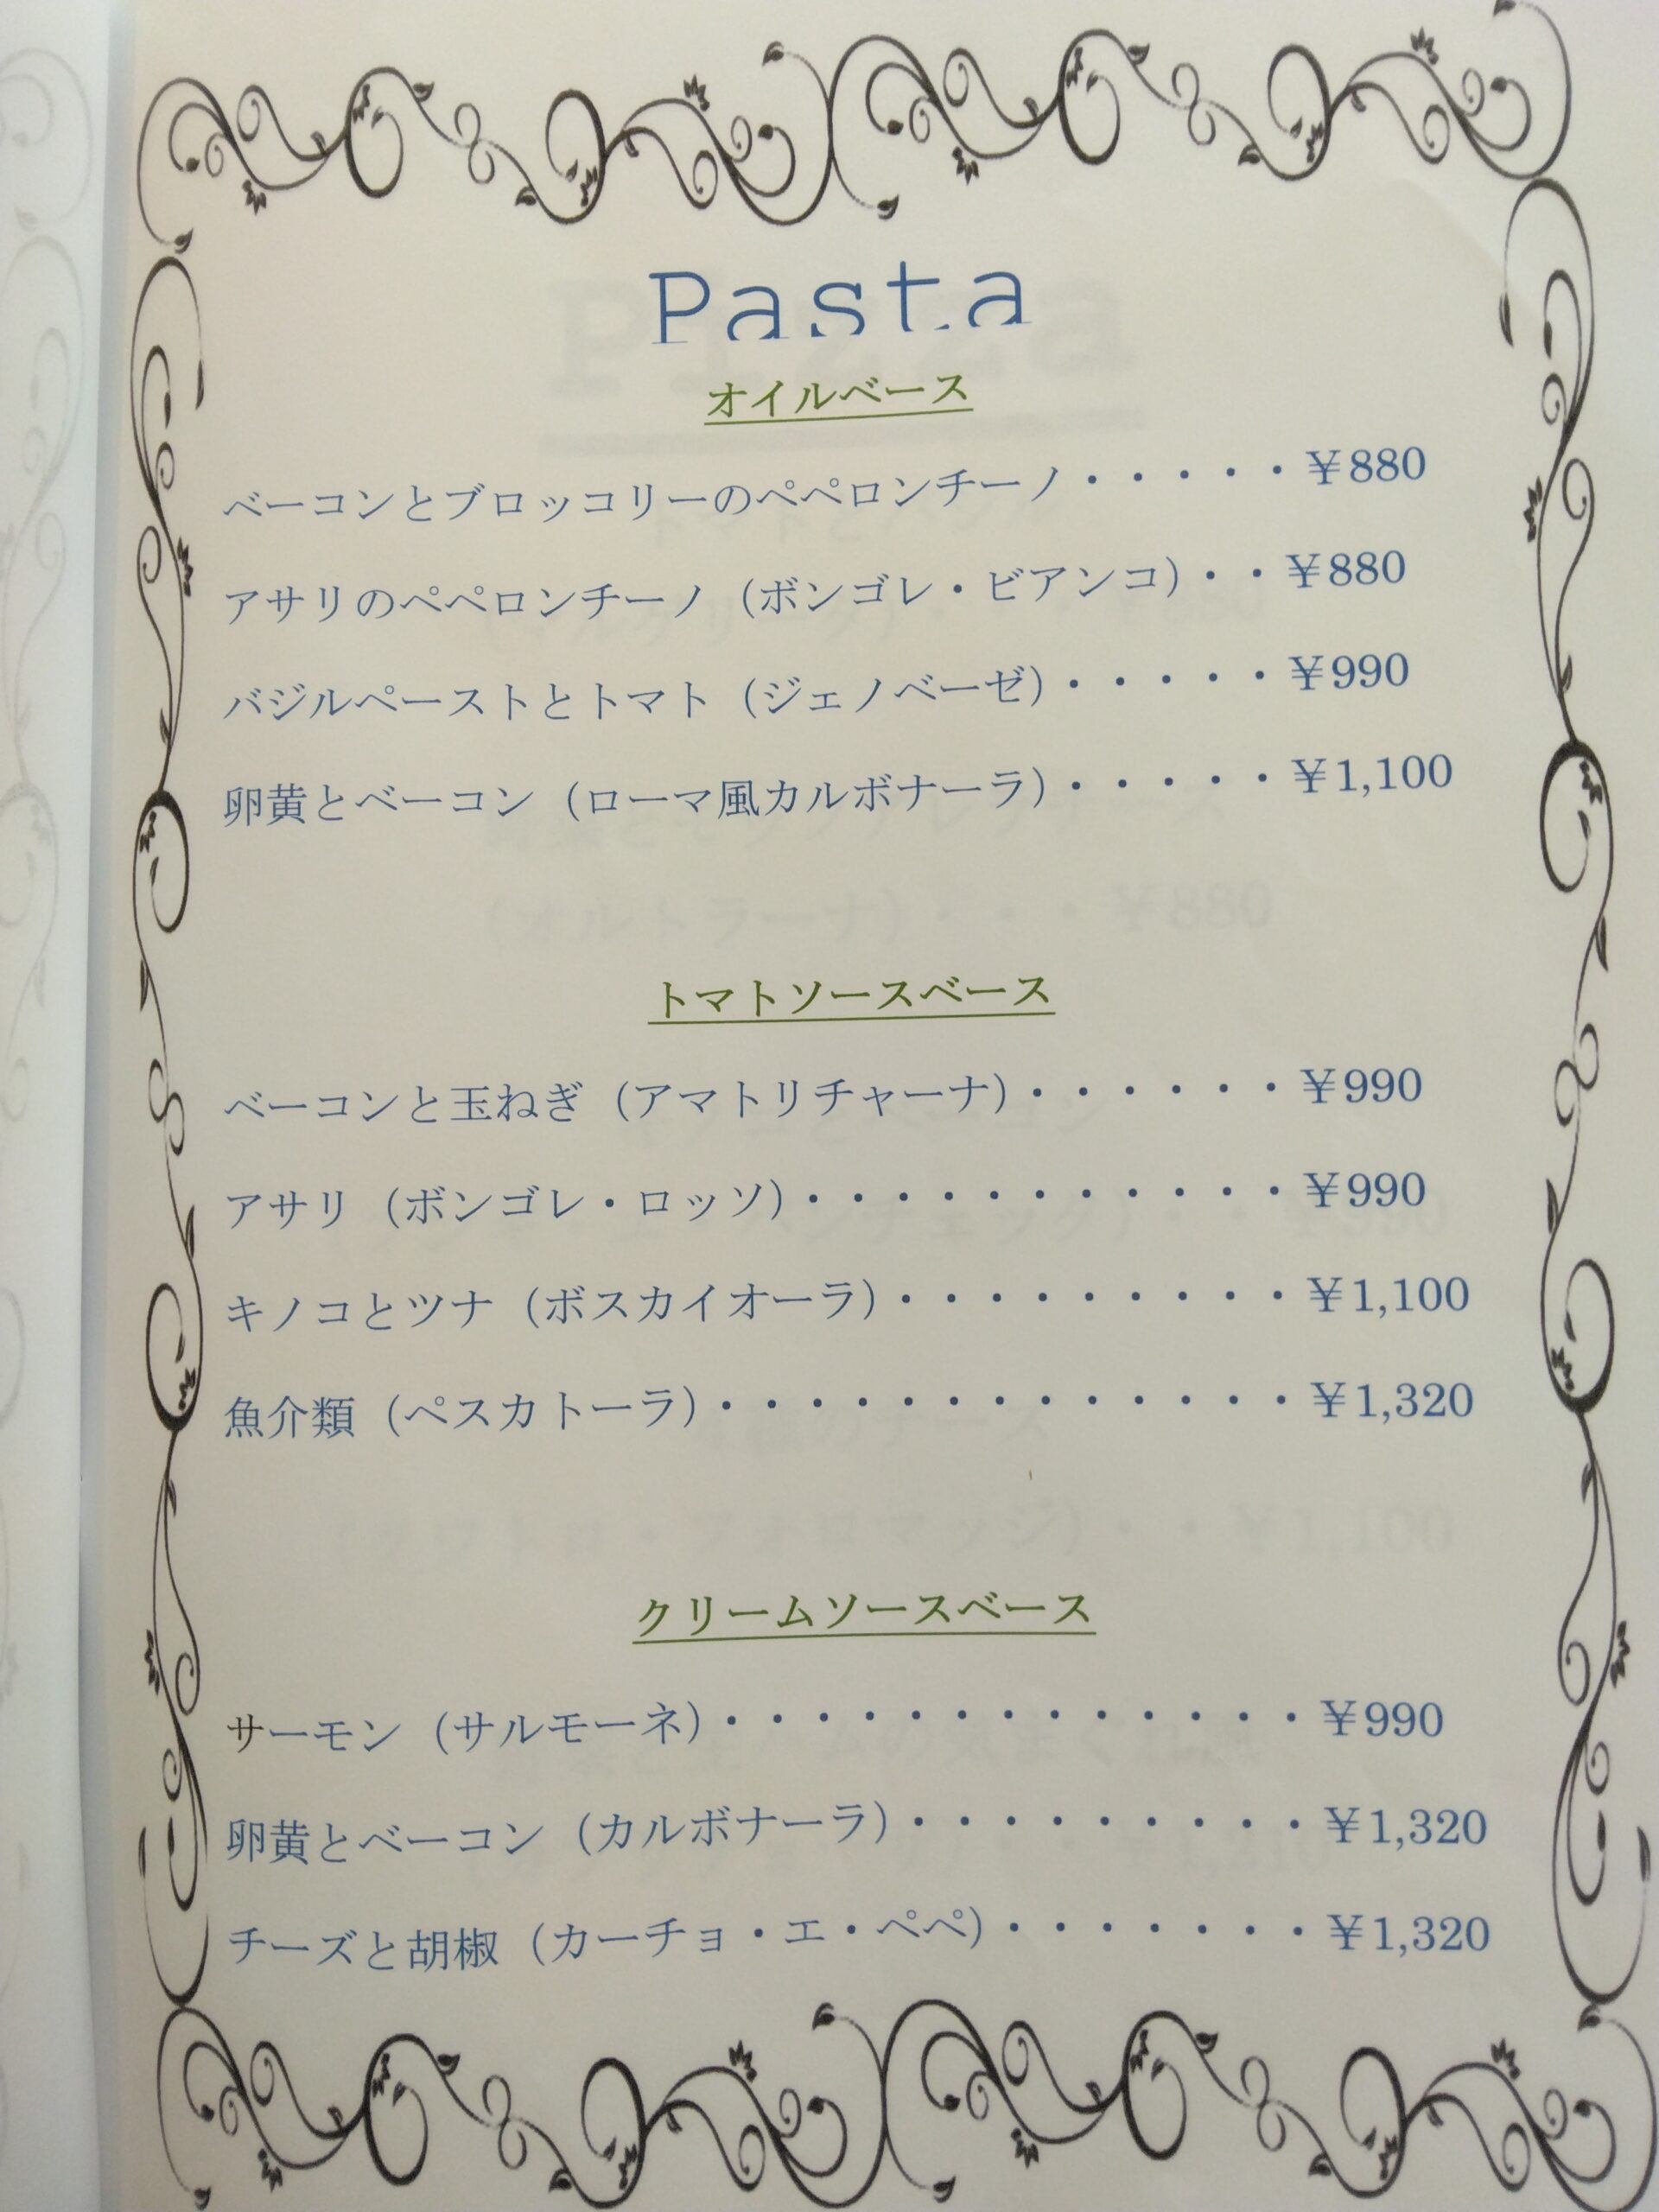 Pasta
オイルベース
ベーコンとブロッコリーのペペロンチーノ・・・・・¥880
アサリのペペロンチーノ（ボンゴレ・ビアンコ）・・¥880
バジルペーストとトマト（ジェノベーゼ）・・・・・¥990
卵黄とベーコン（ローマ風カルボナーラ）・・・・・¥1,100
トマトソースベース
ベーコンと玉ねぎ（アマトリチャーナ）・・・・・・¥990
アサリ（ボンゴレ・ロッソ）・・・・・・・・・・・¥990
キノコとツナ（ボスカイオーラ）・・・・・・・・・¥1,100
魚介類（ペスカトーラ）・・・・・・・・・・・・・¥1,320
クリームソースベース
サーモン（サルモーネ）・・・・・・・・・・・・・¥990
卵黄とベーコン（カルボナーラ）・・・・・・・・・¥1,320
チーズと胡椒（カーチョ・エ・ペペ）・・・・・・・¥1,320